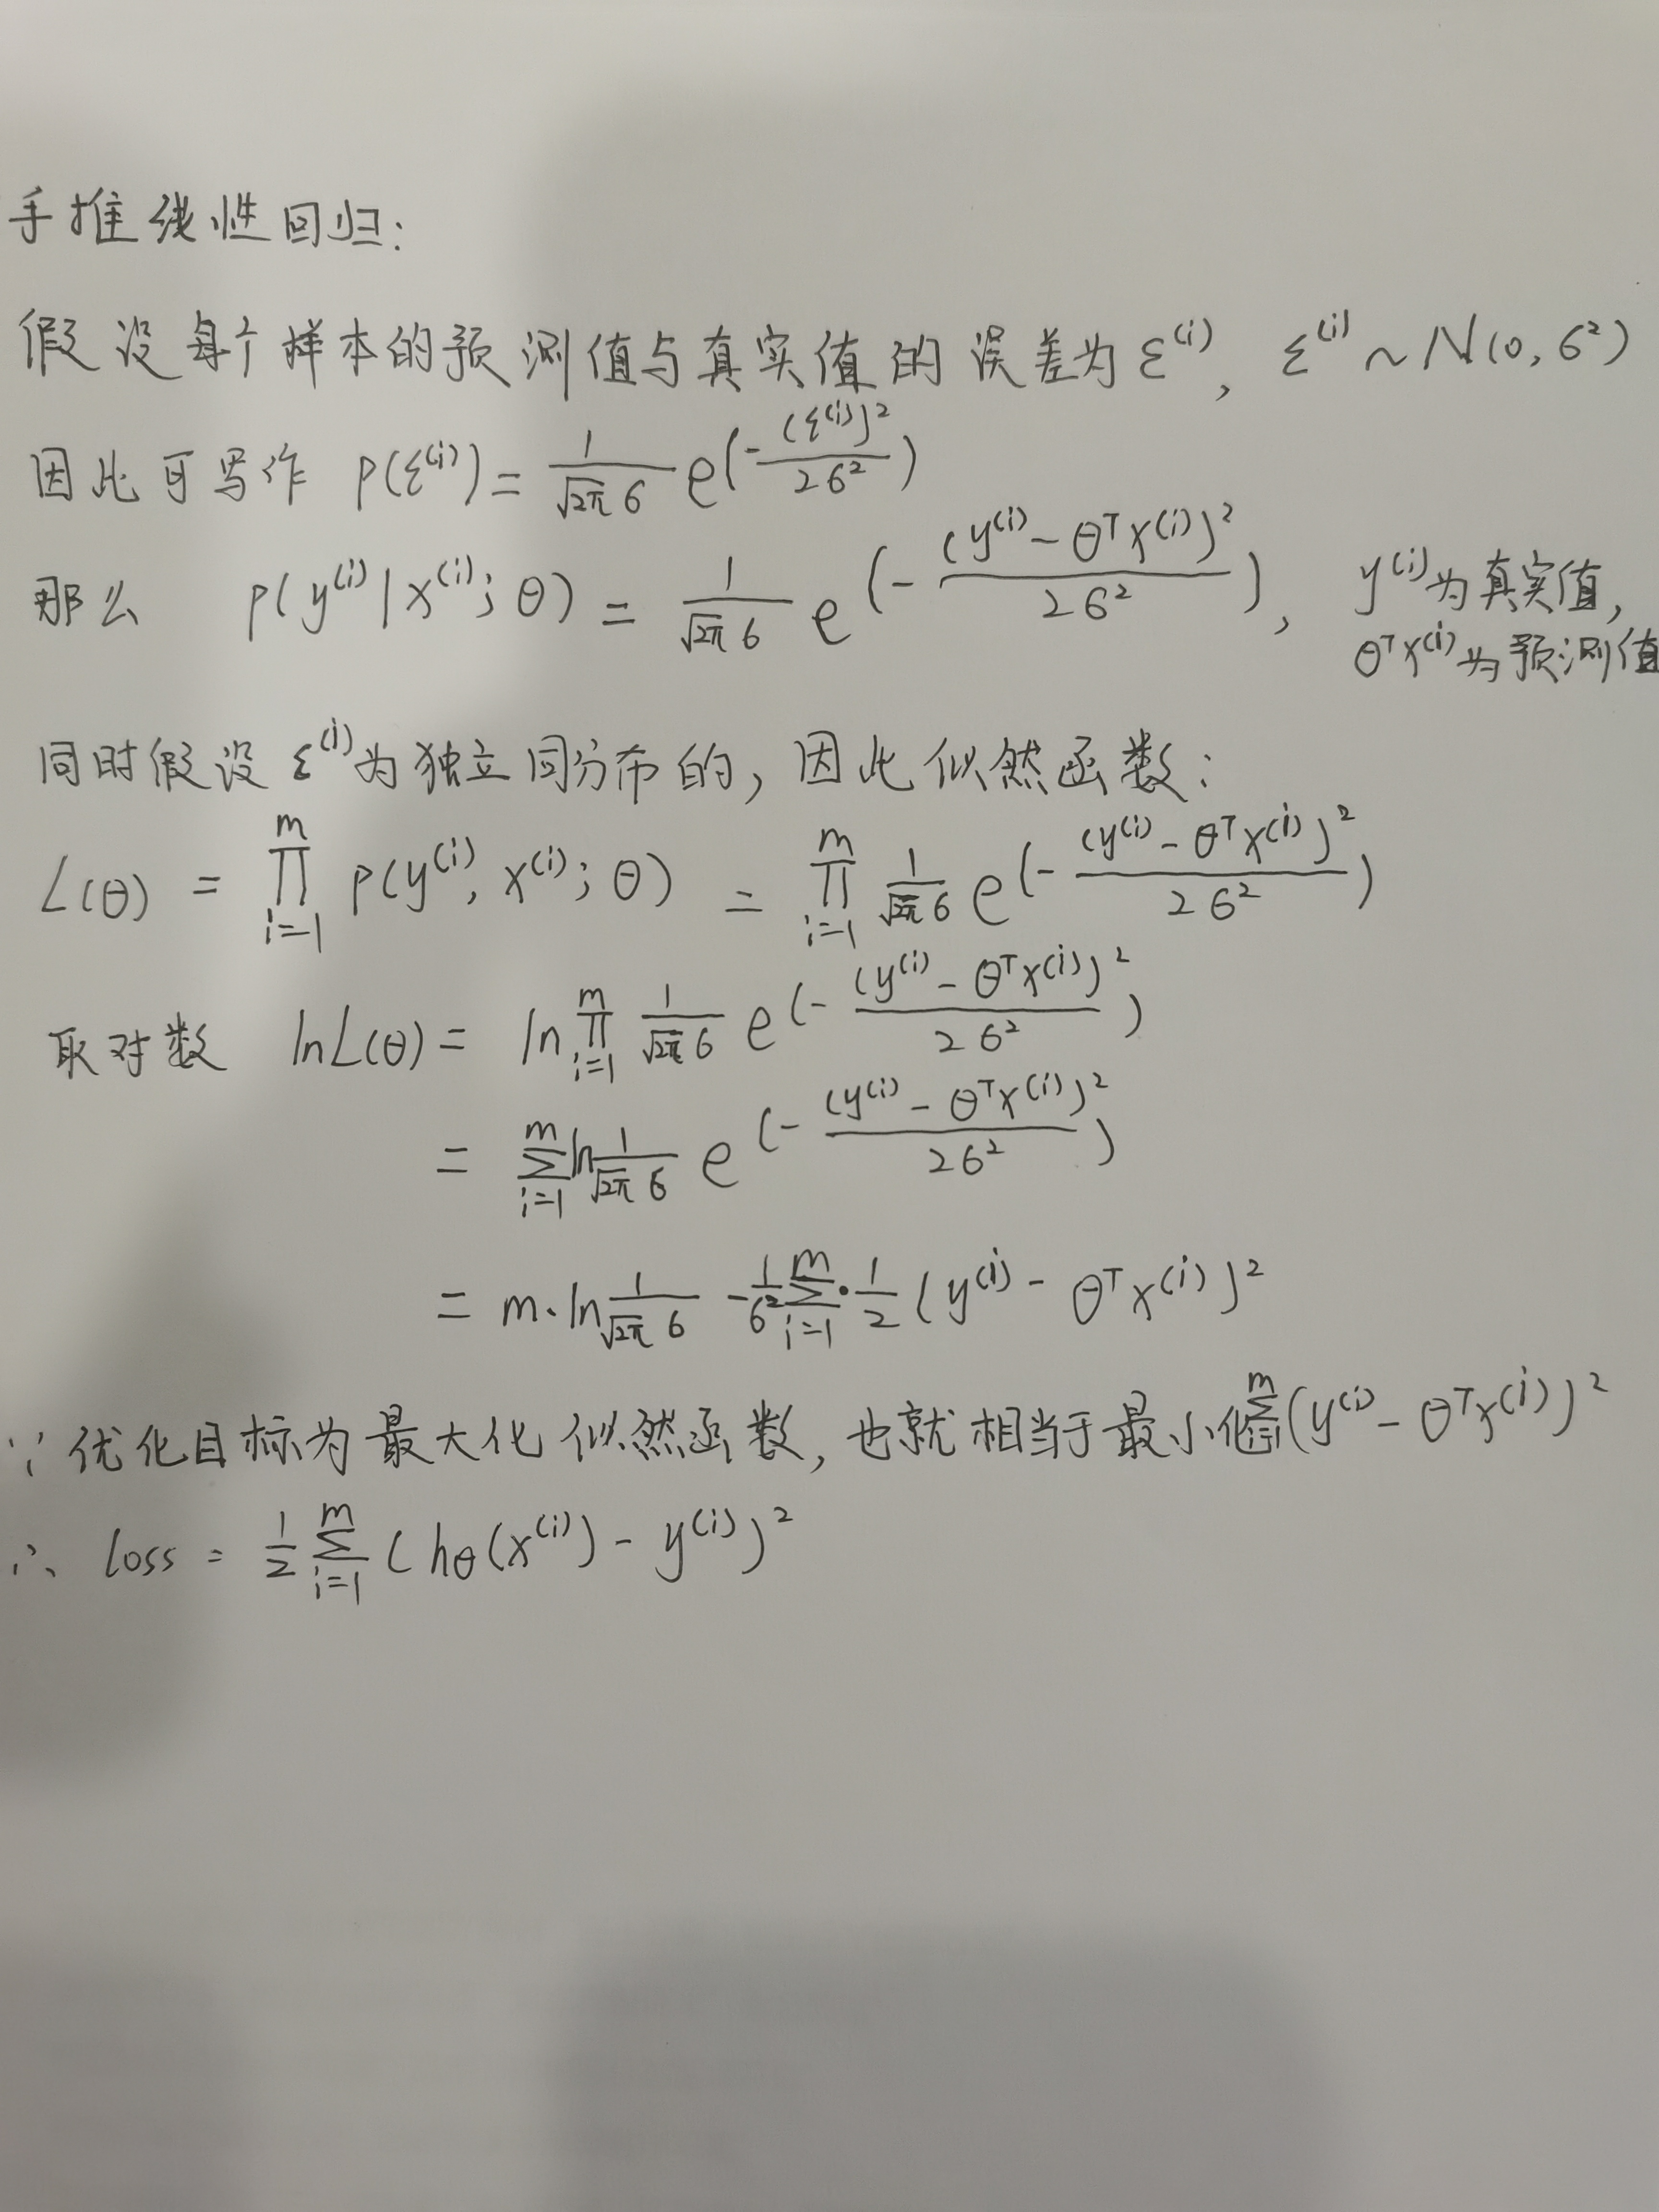 手推线性回归:
假设每个样本的预测值与真实值的误差为 ε^(i), ε^(i) ~ N(0, σ²)
因此可写作 p(ε^(i)) = 1/(√2π σ) e^(-(ε^(i))²/(2σ²))
那么 p(y^(i) | x^(i); θ) = 1/(√2π σ) e^(-(y^(i) - θ^T x^(i))²/(2σ²)), y^(i)为真实值,
θ^T x^(i)为预测值
同时假设 ε^(i)为独立同分布的, 因此似然函数:
L(θ) = ∏_{i=1}^{m} p(y^(i), x^(i); θ) = ∏_{i=1}^{m} 1/(√2π σ) e^(-(y^(i) - θ^T x^(i))²/(2σ²))
取对数 lnL(θ) = ln ∏_{i=1}^{m} 1/(√2π σ) e^(-(y^(i) - θ^T x^(i))²/(2σ²))
= ∑_{i=1}^{m} ln 1/(√2π σ) e^(-(y^(i) - θ^T x^(i))²/(2σ²))
= m·ln 1/(√2π σ) - 1/σ² ∑_{i=1}^{m} · 1/2 (y^(i) - θ^T x^(i))²
∵ 优化目标为最大化似然函数, 也就相当于最小化∑_{i=1}^{m} (y^(i) - θ^T x^(i))²
∴ loss = 1/2 ∑_{i=1}^{m} (hθ(x^(i)) - y^(i))²